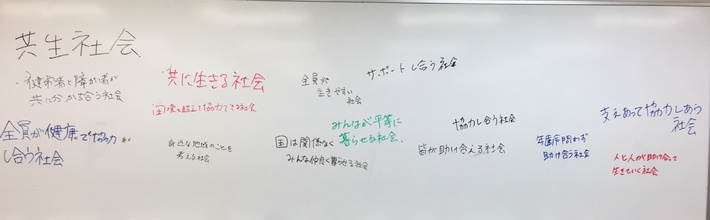 共生社会
・健常者と障がい者が
共に分かち合う社会
共に生きる社会
国境を越えて協力できる社会
全員が
生きやすい
社会
サポートし合う社会
全員が健康で協力が
し合う社会
身近な地域のことを
考える社会
みんなが平等に
暮らせる社会、
国は関係なく
みんな仲良く暮らせる社会
協力し合う社会
皆が助け合える社会
年齢問わず
助け合う社会
支えあって協力しあう
社会
人と人が助け合って
生きていく社会